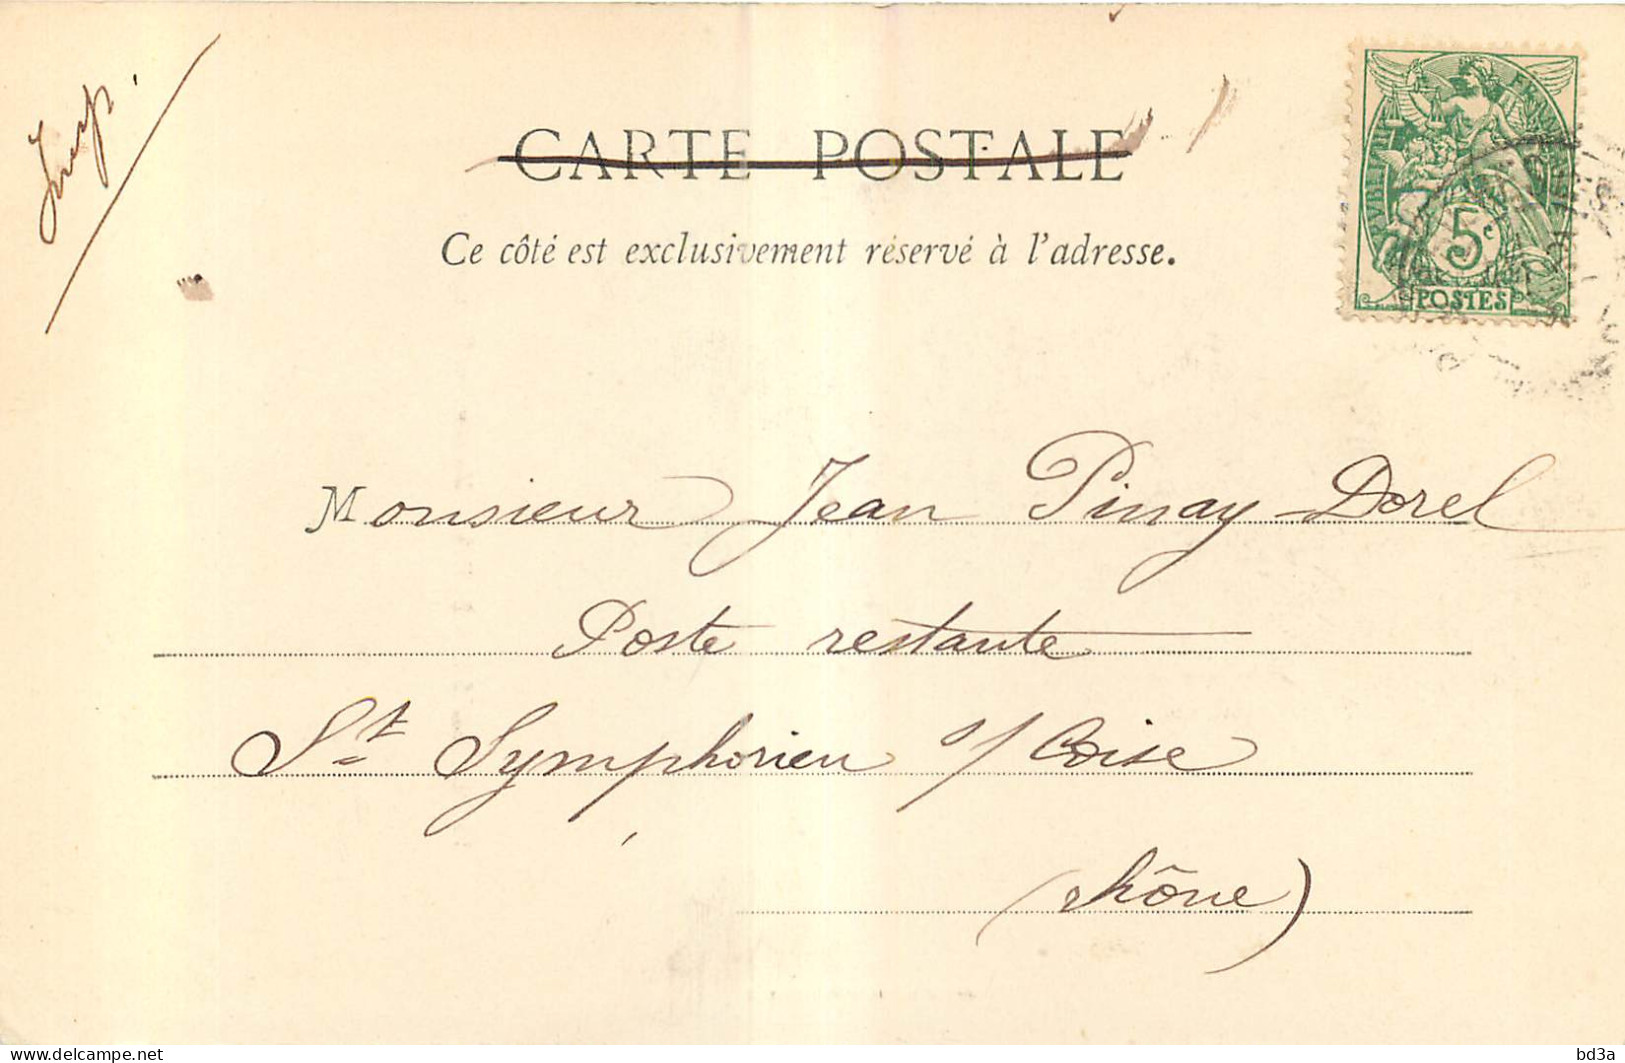 Imp.
CARTE POSTALE
Ce côté est exclusivement réservé à l'adresse.
5c
POSTES
Monsieur Jean Pinay-Dorel
Poste restante
St Symphorien s/ Coise
(Rhône)
delcampe.net
bd3a